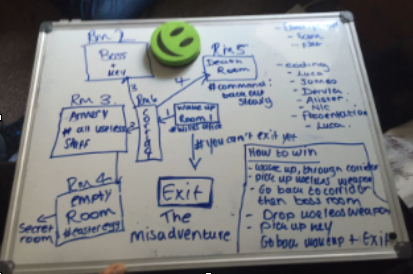 Rm 2
Boss
+
key
Rm 5
Death
Room
#command:
back out
slowly
Rm 3
Armery
# all useless
stuff
Rm 6
wake up
Room 1
# you can't exit yet
Rm 4
empty
Room
#easteregg
Secret
room
Exit
The
misadventure
coding
- Luca
- James
- Dervla
- Alister
- Nic
Presentation
- Luca
How to win
- wake up, through corridor
- pick up useless weapon
- Go back to corridor
then boss room
- Drop useless weapon
- Pick up key
Go back wake up + Exit